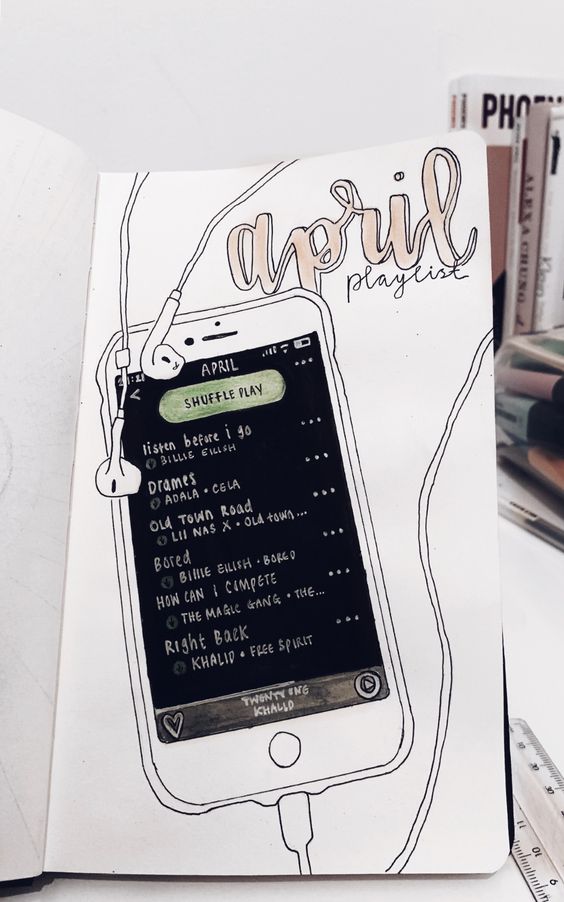 april
playlist
APRIL
<
SHUFFLE PLAY
listen before i go
BILLIE EILISH
Drames
ADALA • CELA
Old Town Road
LIL NAS X • Old town...
Bored
BILLIE EILISH • BORED
HOW CAN I COMPETE
THE MAGIC GANG • THE...
Right Back
KHALID • FREE SPIRIT
TWENTY ONE
KHALID
ALEXA CHUNG
11
10
9